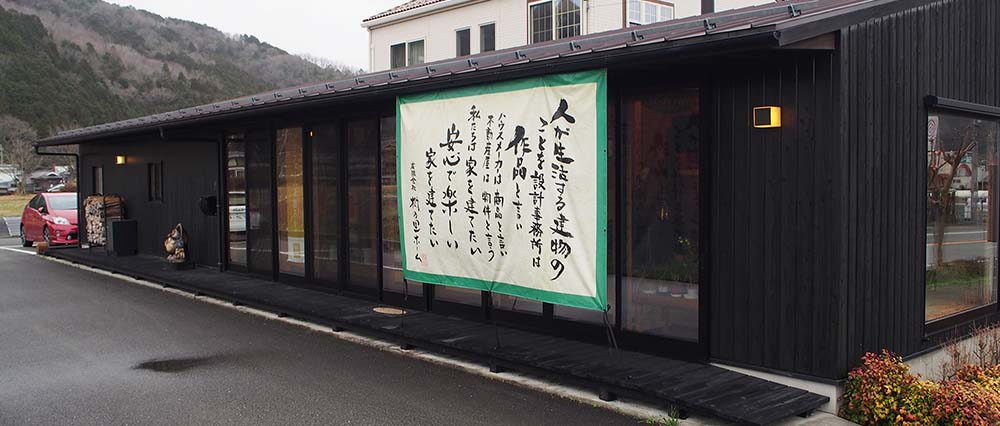 人が生活する建物の
ことを設計事務所は
作品と言い
ハウスメーカーは商品と言い
不動産屋は物件と言う
私たちは家を建てたい
安心で楽しい
家を建てたい
有限会社 樹の里ホーム